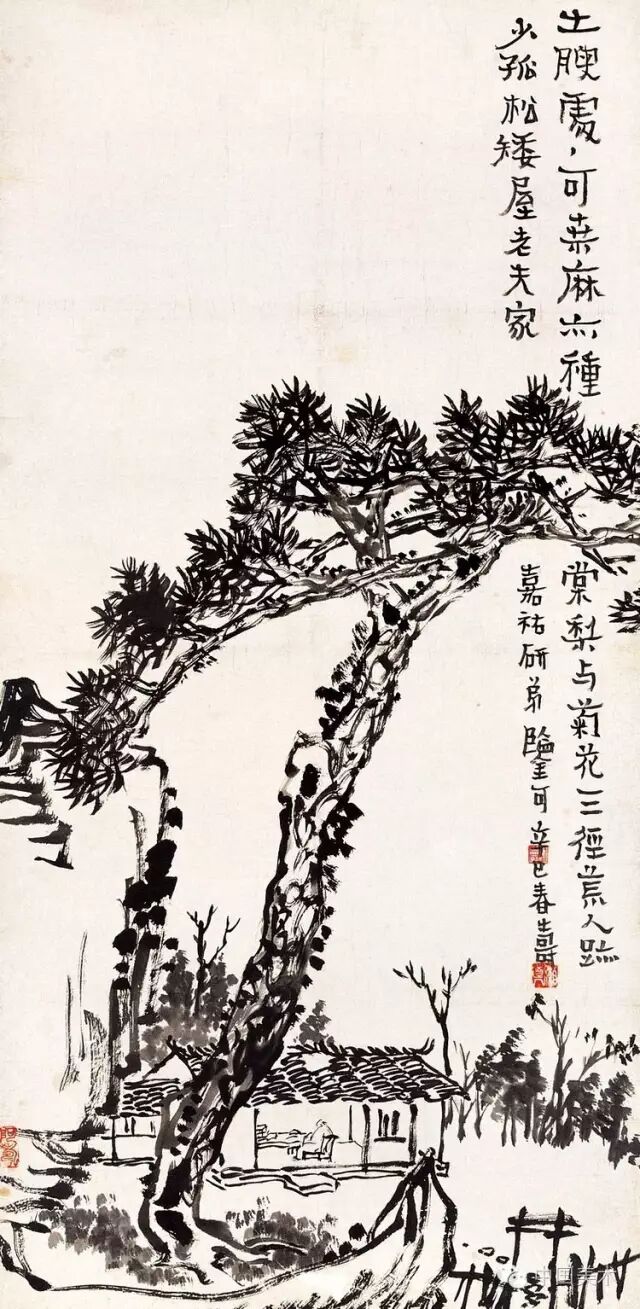 土腴處、可桑麻亦種
棠梨与菊花三徑荒人跡
少孤松矮屋老夫家
嘉祐研弟鑒可辛巳春壽
中国美术